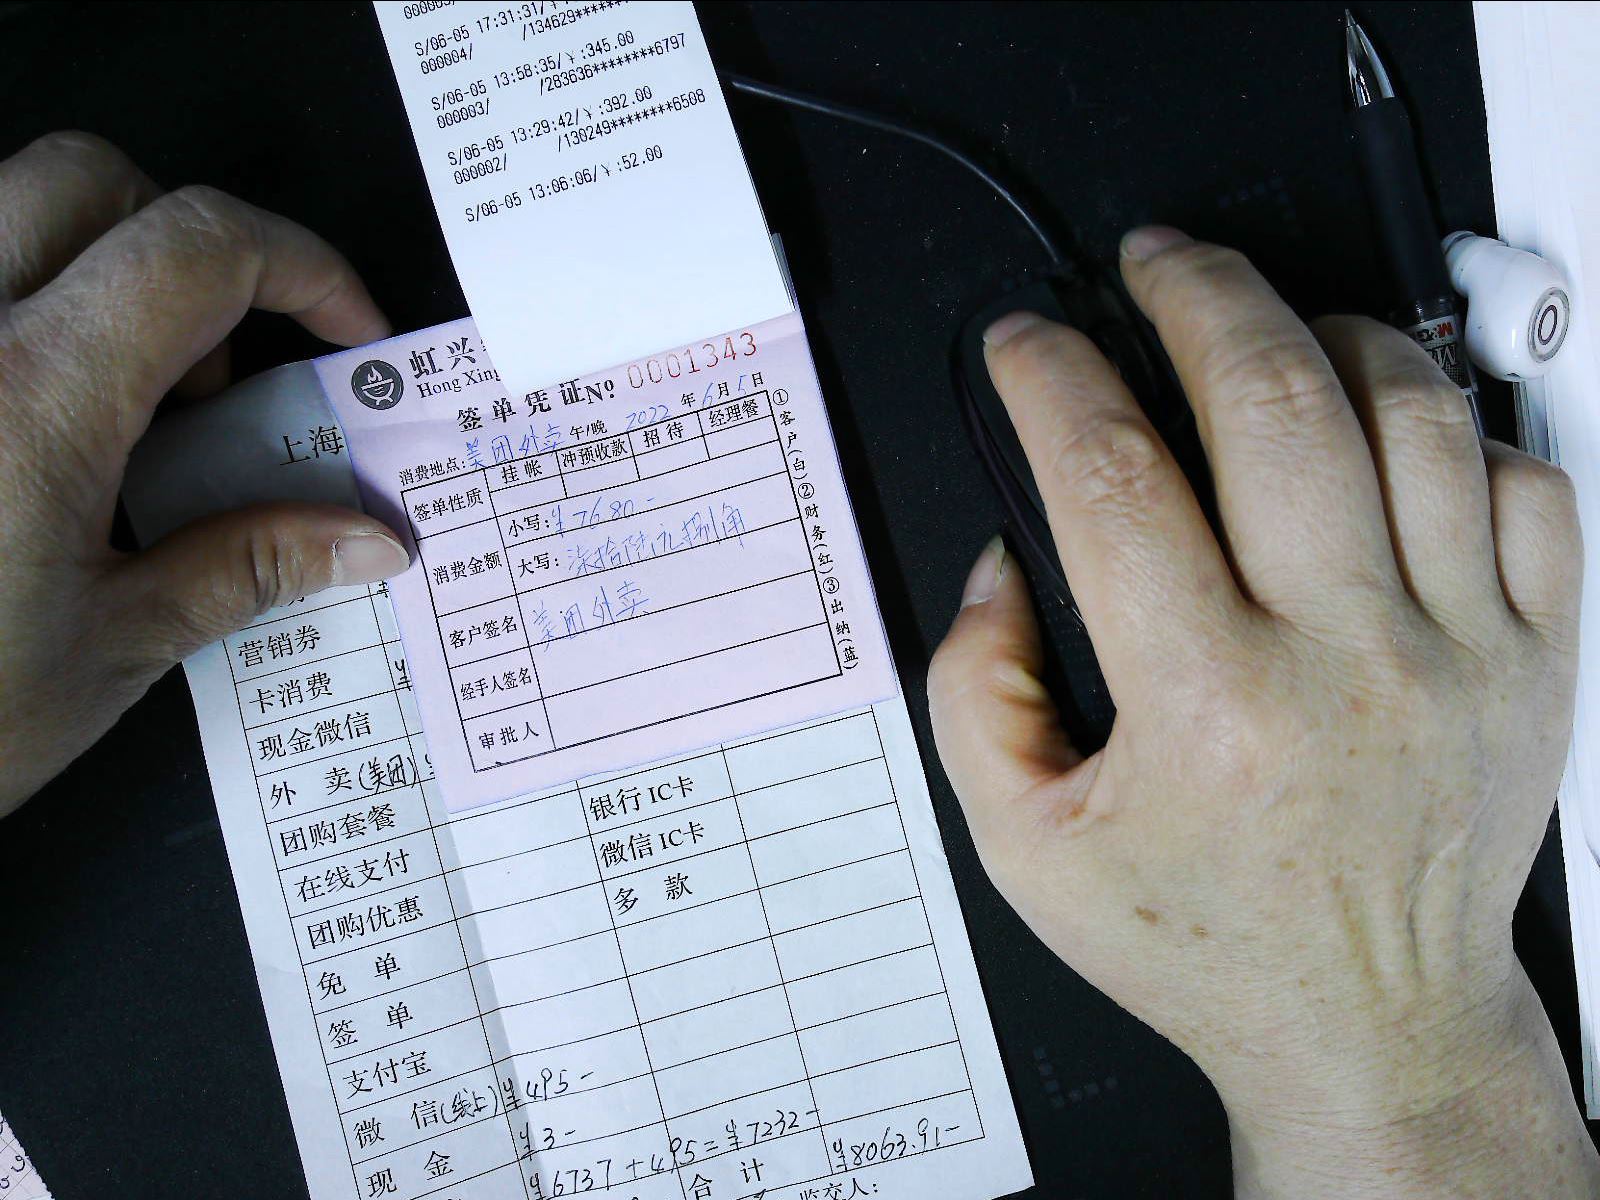 S/06-05 17:31:31/￥
000004/ /134629*******
S/06-05 13:58:35/￥:345.00
000003/ /283636********6797
S/06-05 13:29:42/￥:392.00
000002/ /130249********6508
S/06-05 13:06:06/￥:52.00
虹兴
Hong Xing
签单凭证№: 0001343
消费地点:美团外卖 午/晚 2022年6月5日
签单性质 挂帐 冲预收款 招待 经理餐
消费金额 小写:¥76.80-
大写:柒拾陆元捌角
客户签名 美团外卖
经手人签名
审批人
①客户(白)②财务(红)③出纳(蓝)
上海
营销券
卡消费
现金微信
外卖(美团)
团购套餐 银行IC卡
在线支付 微信IC卡
团购优惠 多款
免单
签单
支付宝
微信(线上) ¥495-
现金 ¥3-
¥6737+495=¥7232-
合计 ¥8063.91-
监交人: